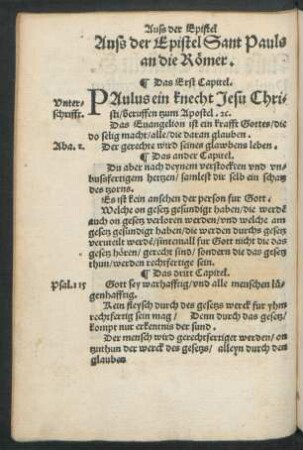 Auss der Epistel
Auss der Epistel Sant Pauls
an die Römer.
¶ Das Erst Capitel.
Vnter-
schrifft.
PAulus ein knecht Jesu Chri-
sti/beruffen tzum Apostel. ꝛc.
Das Euangelion ist ein krafft Gottes/die
do selig macht/alle/die daran glauben.
Aba. 1. Der gerechte wird seines glawbens leben.
¶ Das ander Capitel.
Du aber nach deynem verstockten vnd vn-
busfertigem hertzen/samlest dir selb ein schatz
des tzorns.
Es ist kein ansehen der person fur Gott.
Welche on gesetz gesundigt haben/die werdē
auch on gesetz verloren werden/vnd welche am
gesetz gesundigt haben/die werden durchs gesetz
verurteilt werdē/sintemall fur Gott nicht die das
gesetz hören/gerecht sind/sondern die das gesetz
thun/werden rechtfertige sein.
¶ Das dritt Capitel.
Psal.115 Gott sey warhafftig/vnd alle menschen lü-
genhafftig.
Kein fleysch durch des gesetzs werck fur yhm
rechtfertig sein mag/ Denn durch das gesetz/
kompt nur erkentnis der sund.
Der mensch wird gerechtfertiget werden/on
tzuthun der werck des gesetzs/alleyn durch den
glauben